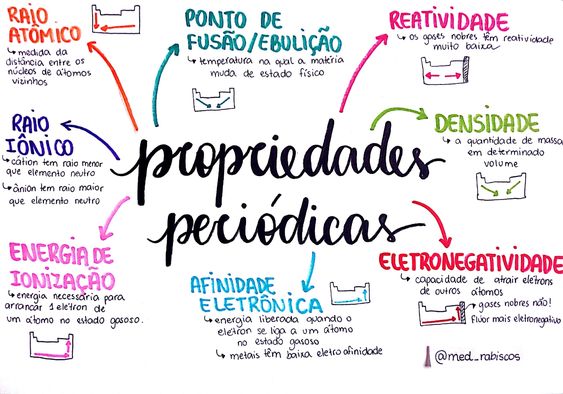 RAIO
ATÔMICO
↳ medida da
distância entre os
núcleos de átomos
vizinhos
PONTO DE
FUSÃO/EBULIÇÃO
↳ temperatura na qual a matéria
muda de estado físico
REATIVIDADE
↳ os gases nobres têm reatividade
muito baixa
RAIO
IÔNICO
↳ cátion tem raio menor
que elemento neutro
↳ ânion tem raio maior
que elemento neutro
propriedades
periódicas
DENSIDADE
↳ a quantidade de massa
em determinado
volume
ENERGIA DE
IONIZAÇÃO
↳ energia necessária para
arrancar 1 elétron de
um átomo no estado gasoso.
AFINIDADE
ELETRÔNICA
↳ energia liberada quando o
elétron se liga a um átomo
no estado gasoso
↳ metais têm baixa eletroafinidade
ELETRONEGATIVIDADE
↳ capacidade de atrair elétrons
de outros átomos
gases nobres não!
Flúor mais eletronegativo
@med_rabiscos